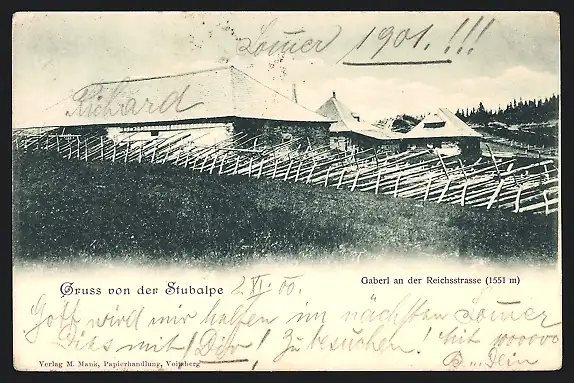 Somer 1901.!!!
Richard
Gruss von der Stubalpe 2. VI. 00.
Gaberl an der Reichsstrasse (1551 m)
Gott wird mir helfen im nächsten Somer
Dies mit Dir! Zu besuchen! Mit 1000000
B... Dein
Verlag M. Mank, Papierhandlung, Voitsberg